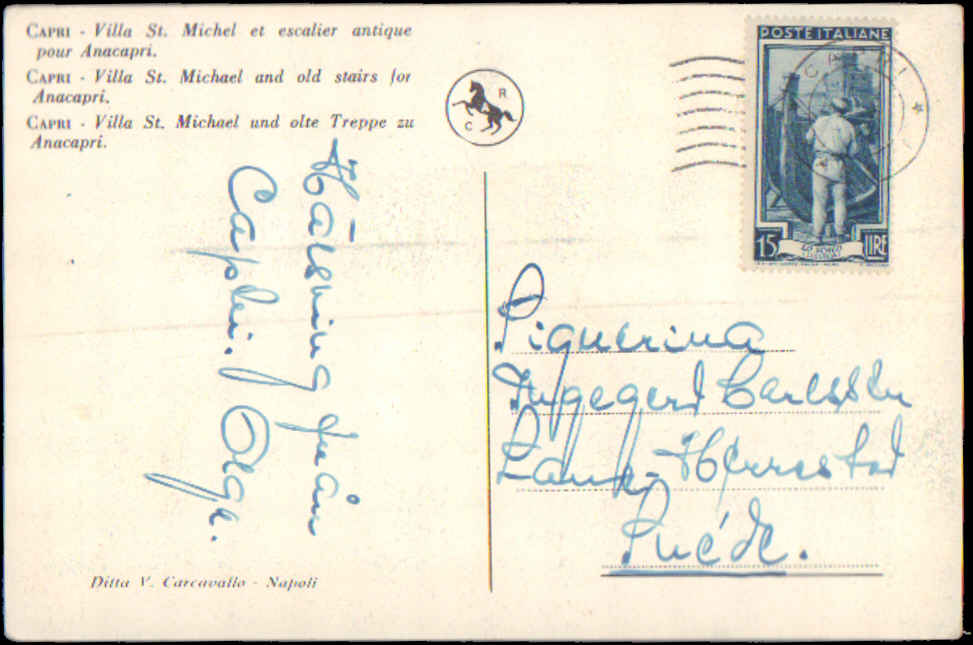 CAPRI - Villa St. Michel et escalier antique
pour Anacapri.
CAPRI - Villa St. Michael and old stairs for
Anacapri.
CAPRI - Villa St. Michael und olte Treppe zu
Anacapri.
R
C
POSTE ITALIANE
CAPRI
15 LIRE
Hälsning från
Capri. Olga.
Signerina
Ingegerd Carlsson
Lang-Herrestad
Suéde.
Ditta V. Carcavallo - Napoli